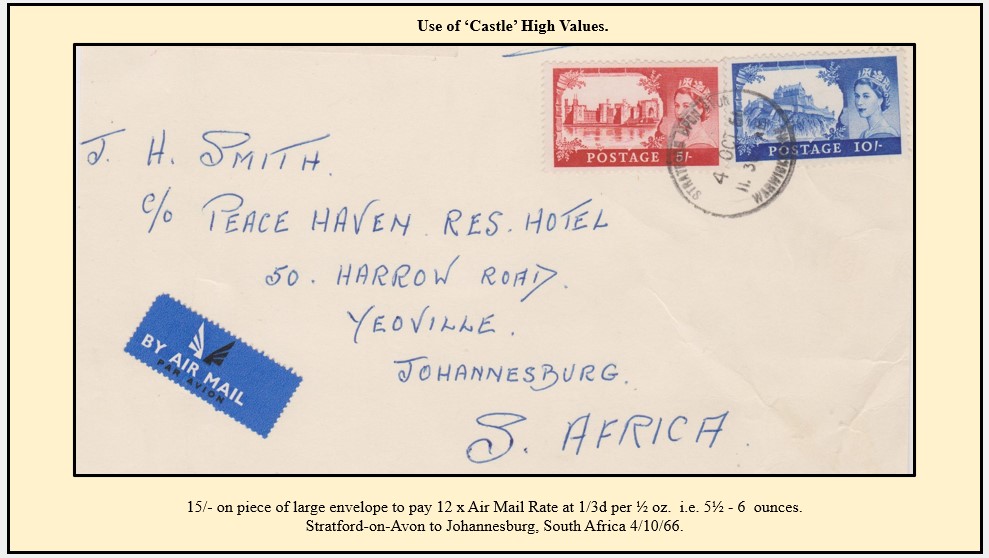 Use of ‘Castle’ High Values.
POSTAGE 5/-
POSTAGE 10/-
STRATFORD UPON AVON
4 OCT
11.3
WARWICKSHIRE
J. H. SMITH.
c/o PEACE HAVEN RES. HOTEL
50. HARROW ROAD.
YEOVILLE.
JOHANNESBURG.
S. AFRICA.
BY AIR MAIL
PAR AVION
15/- on piece of large envelope to pay 12 x Air Mail Rate at 1/3d per ½ oz. i.e. 5½ - 6 ounces.
Stratford-on-Avon to Johannesburg, South Africa 4/10/66.